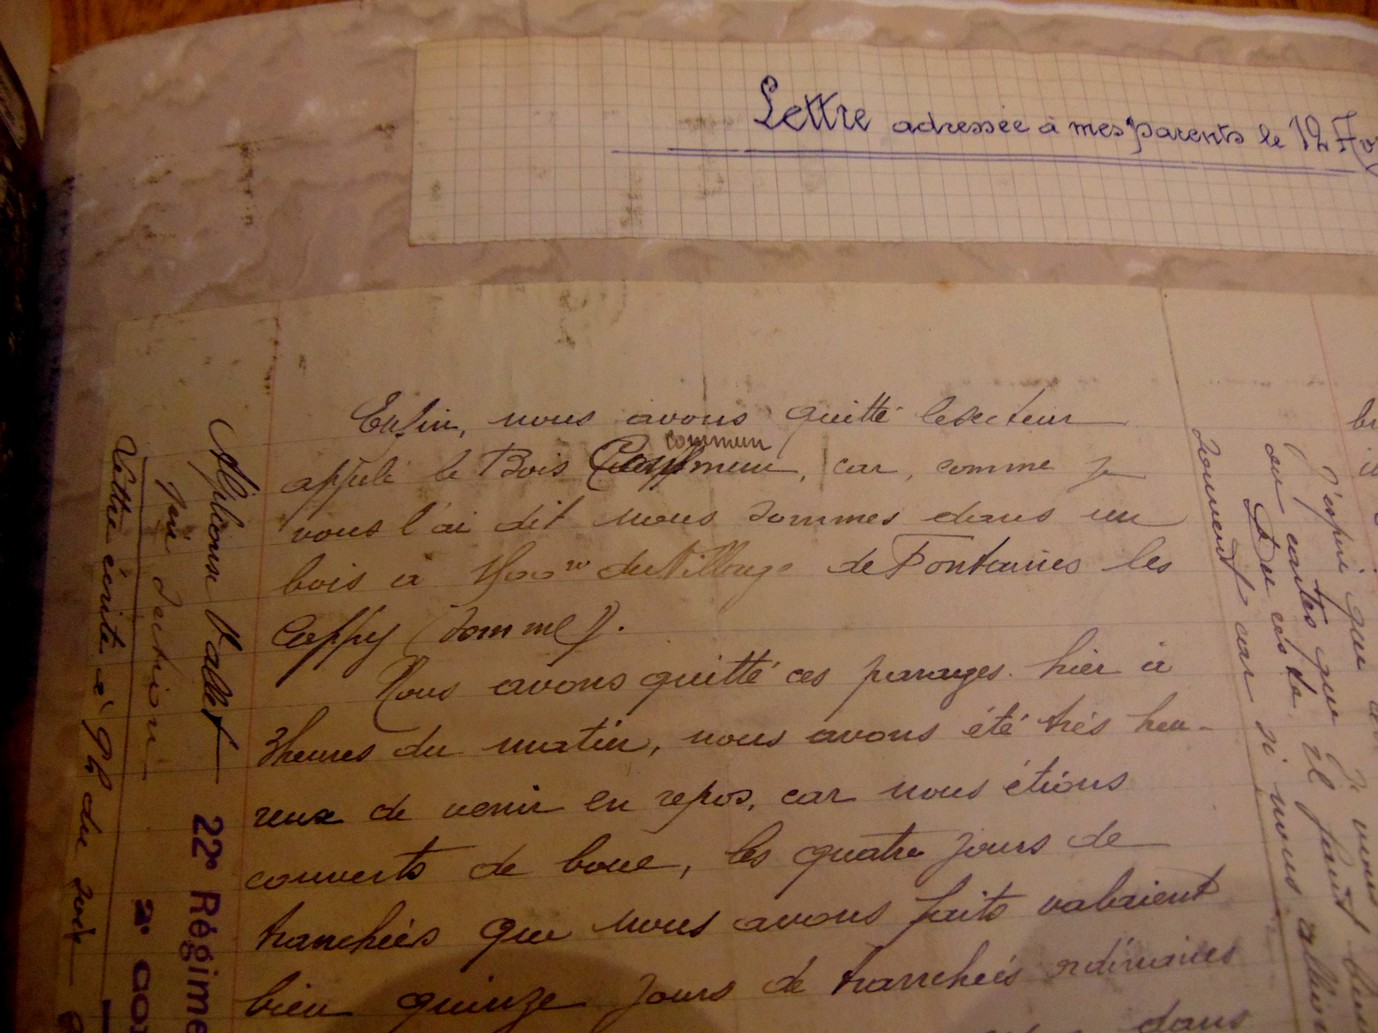 Lettre adressée à mes parents le 12
Enfin, nous avons quitté le secteur
commun
appelé le Bois commun, car, comme je
vous l'ai dit nous sommes dans un
bois à du Village de Fontaines les
Cappy (Somme).
Nous avons quitté ces parages hier à
3 heures du matin, nous avons été très heu-
reux de venir en repos, car nous étions
couverts de boue, les quatre jours de
tranchées que nous avons faits valaient
bien quinze jours de tranchées ordinaires
dans
Alphonse Vallet 22e Régime
section 2e
Lettre écrite à 9h du soir
J'espère que
contes que il faut
souvent car si nous allions